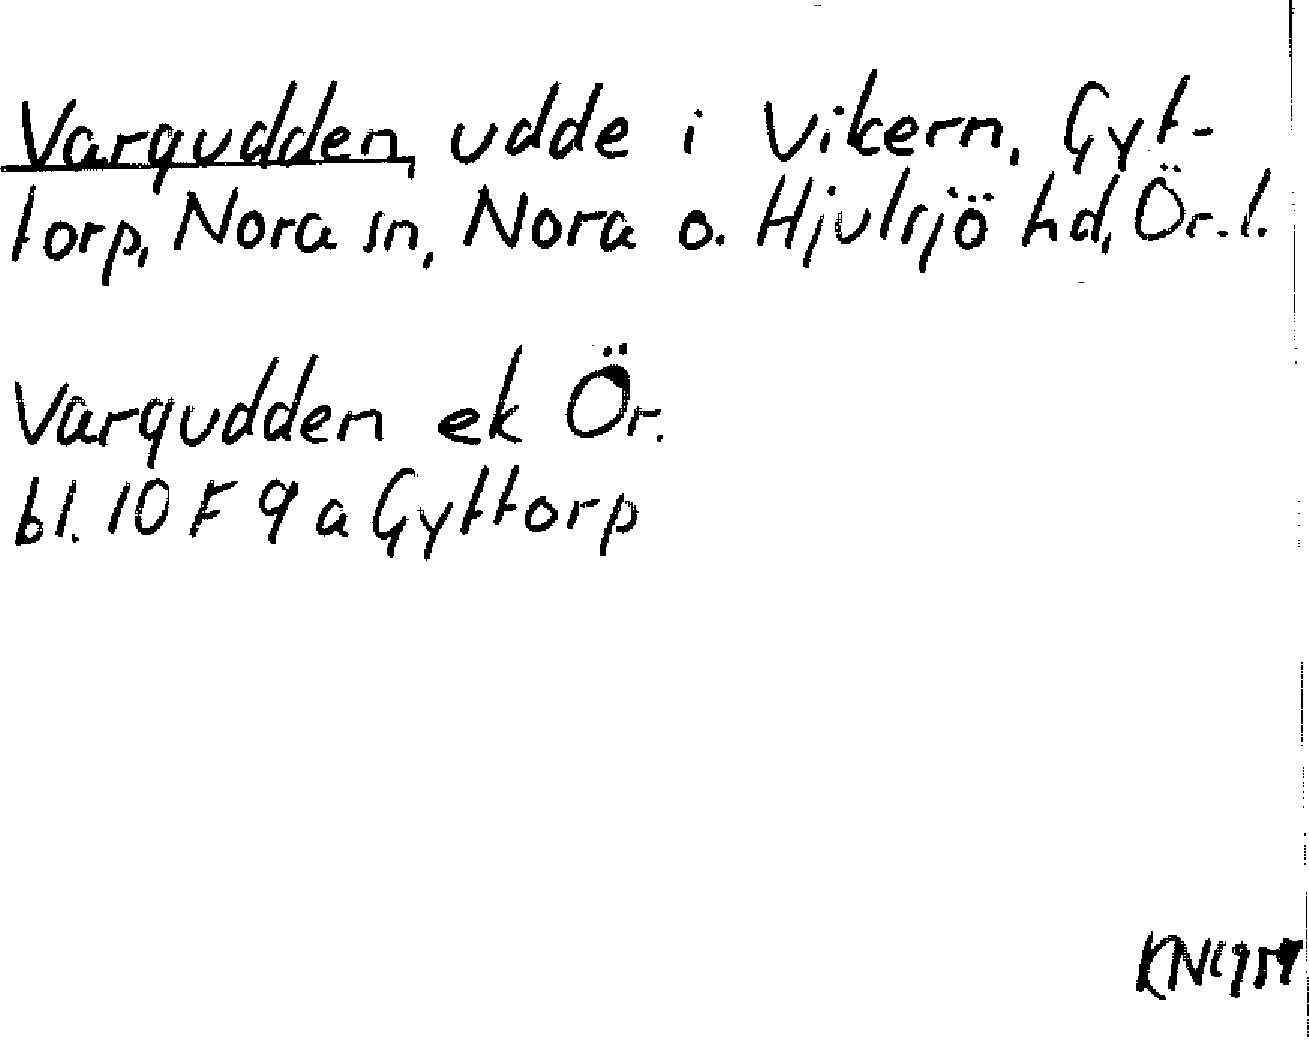 Vargudden, udde i Vikern, Gyt-
torp, Nora sn, Nora o. Hjulsjö hd, Ör. l.
Vargudden ek Ör.
bl. 10 F 9 a Gyttorp